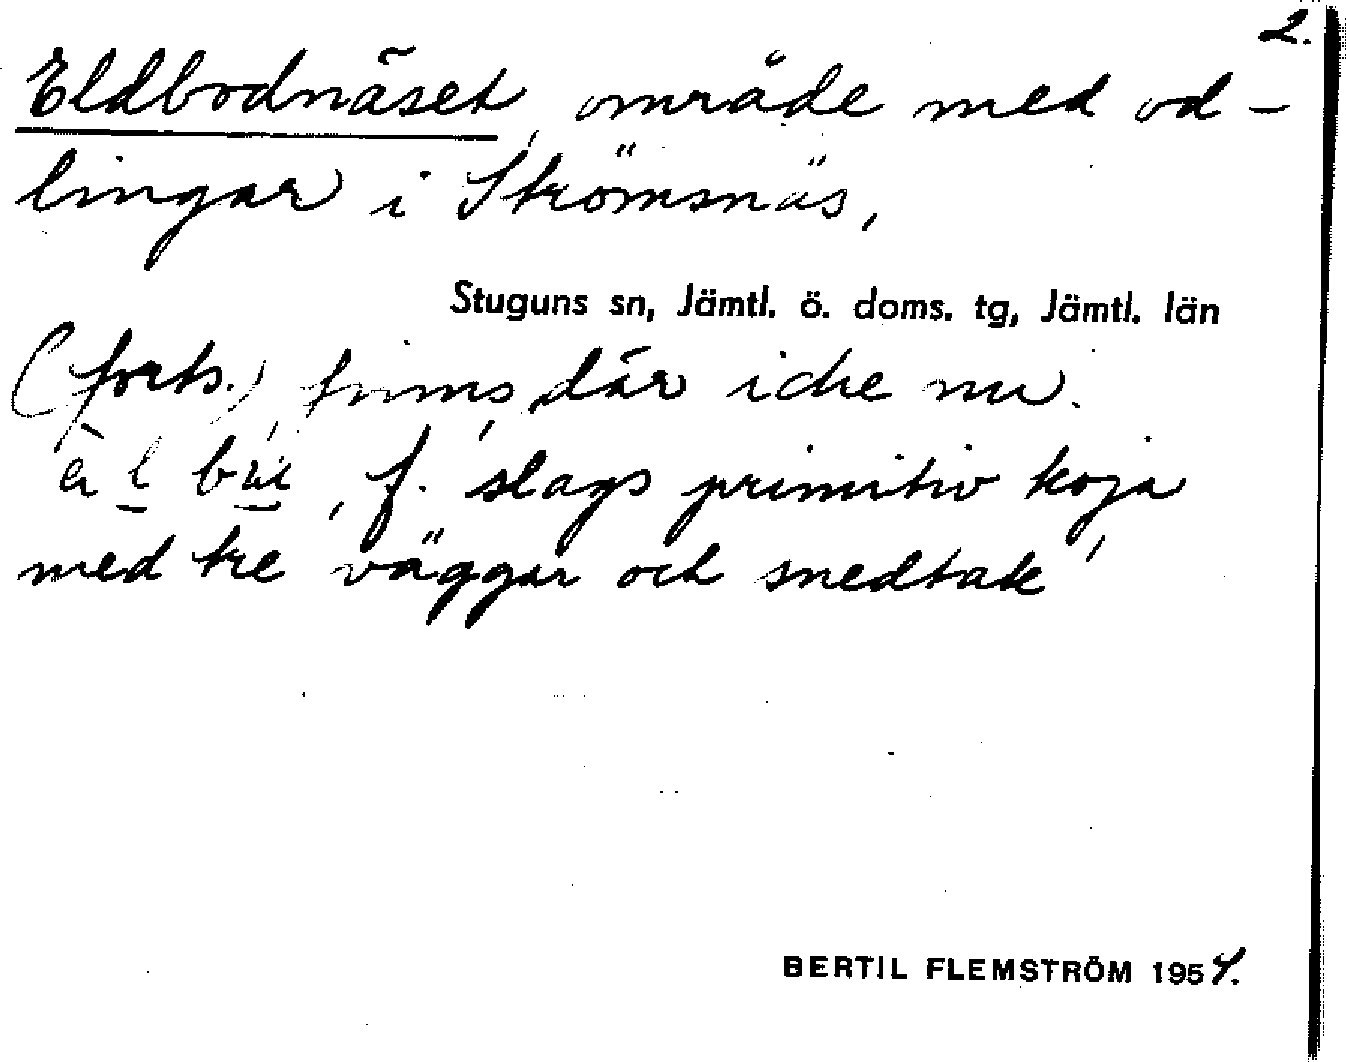 2.
Eldbodnäset, område med od-
lingar i Strömsnäs,
Stuguns sn, Jämtl. ö. doms. tg, Jämtl. län
(forts.) finns där icke nu.
f. slags primitiv koja
med tre väggar och snedtak
BERTIL FLEMSTRÖM 1954.